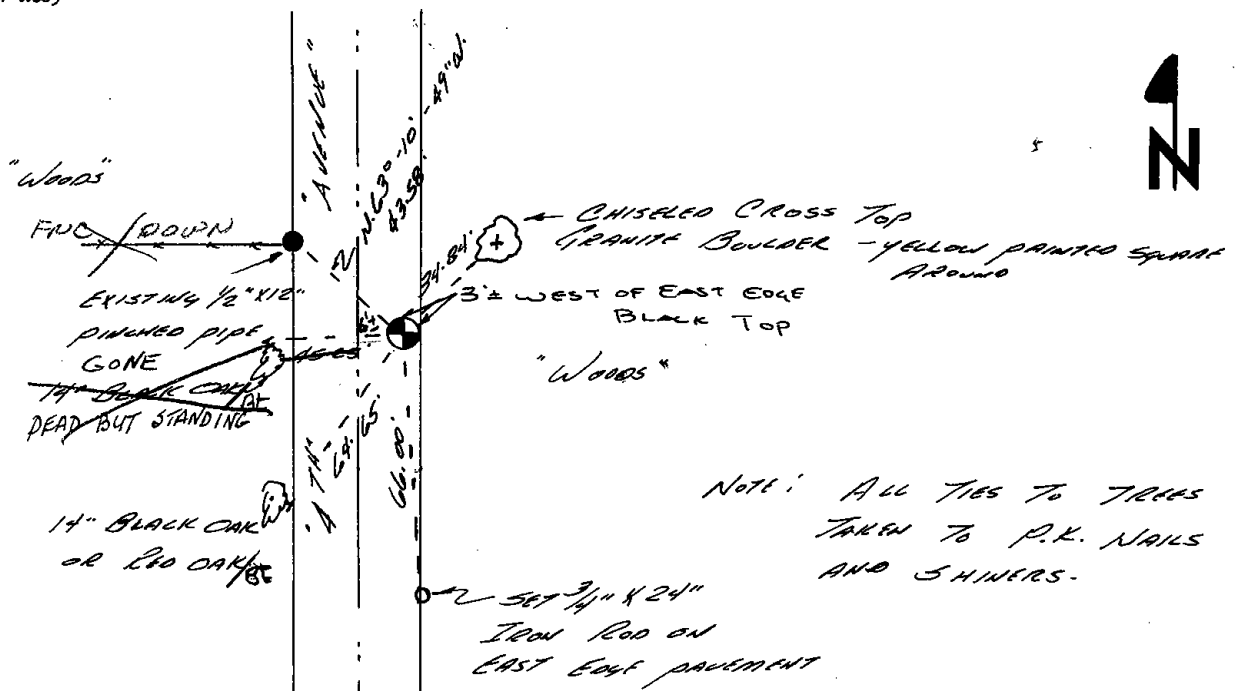 "AVENUE"
N.63°-10'-49"W.
43.58'
N
"WOODS"
FNC/DOWN
CHISELED CROSS TOP
GRANITE BOULDER - YELLOW PAINTED SQUARE
AROUND
34.84'
EXISTING 1/2" X 12"
PINCHED PIPE
GONE
3'± WEST OF EAST EDGE
BLACK TOP
"WOODS"
14" BLACK OAK
BT
DEAD BUT STANDING
"4TH"
64.65'
66.00'
14" BLACK OAK
OR RED OAK/BT
NOTE: ALL TIES TO TREES
TAKEN TO P.K. NAILS
AND SHINERS.
SET 3/4" X 24"
IRON ROD ON
EAST EDGE PAVEMENT